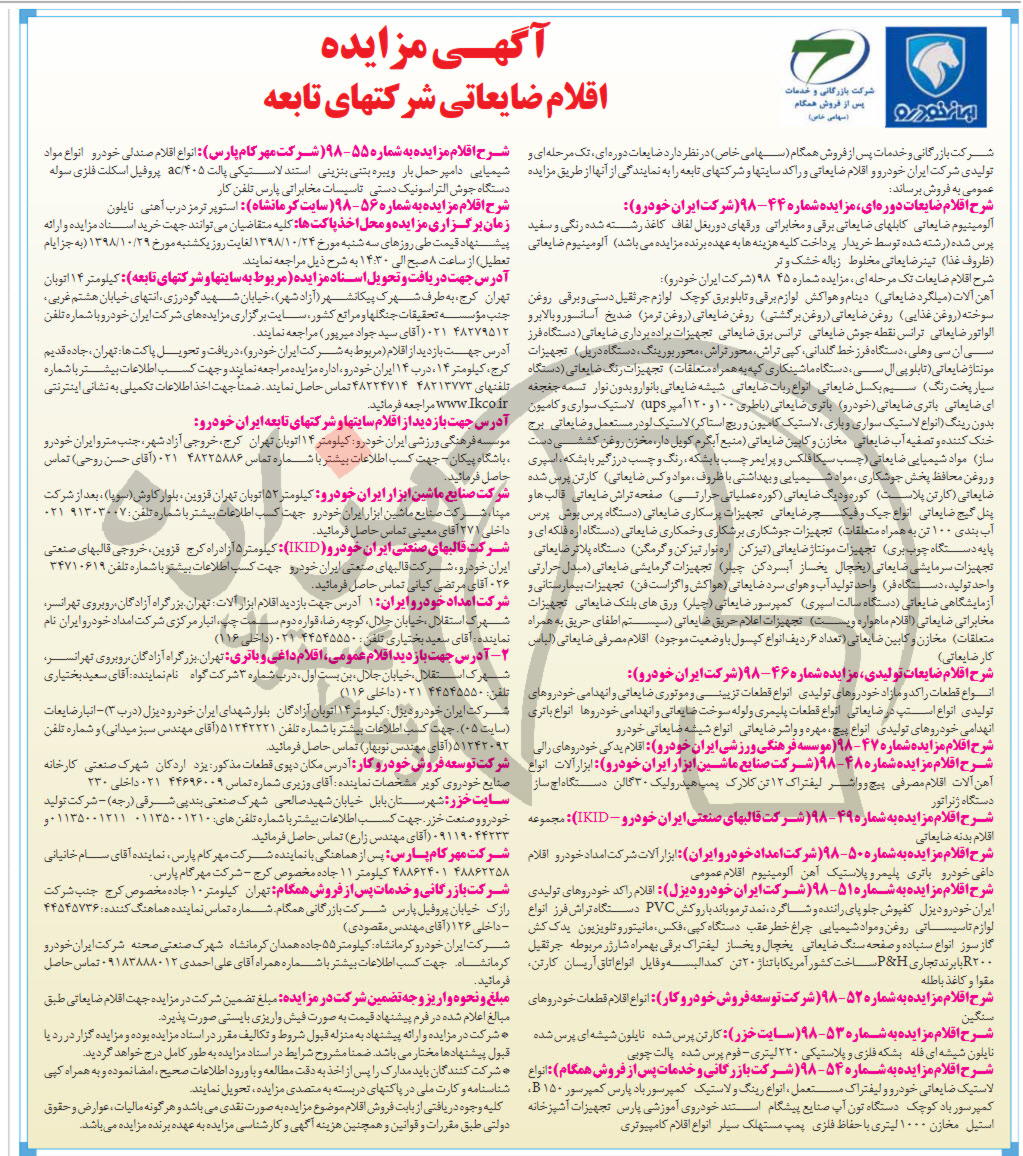 آگهـــی مزایده
اقلام ضایعاتی شرکتهای تابعه
شرکت بازرگانی و خدمات
پس از فروش همگام
(سهامی خاص)
ایران خودرو
شــرکت بازرگانی وخدمات پس از فروش همگام (ســهامی خاص) در نظر دارد ضایعات دوره ای، تک مرحله ای و
تولیدی شرکت ایران خودرو و اقلام ضایعاتی و راکد سایتها و شرکتهای تابعه را به نمایندگی از آنها از طریق مزایده
عمومی به فروش برساند:
شرح اقلام ضایعات دوره ای، مزایده شماره ۴۴-۹۸ (شرکت ایران خودرو):
آلومینیوم ضایعاتی کابلهای ضایعاتی برقی و مخابراتی ورقهای دوربغل لفاف کاغذ رشته شده رنگی و سفید
پرس شده (رشته شده توسط خریدار پرداخت کلیه هزینه ها به عهده برنده مزایده می باشد) آلومینیوم ضایعاتی
(ظروف غذا) تینر ضایعاتی مخلوط زباله خشک و تر
شرح اقلام ضایعات تک مرحله ای ، مزایده شماره ۴۵ ۹۸ (شرکت ایران خودرو):
آهن آلات (میلگرد ضایعاتی) دینام و هواکش لوازم برقی و تابلو برق کوچک لوازم جرثقیل دستی و برقی روغن
سوخته (روغن غذایی) روغن ضایعاتی (روغن برگشتی) روغن ضایعاتی (روغن ترمز) ضدیخ آسانسور و بالابر و
الواتور ضایعاتی ترانس نقطه جوش ضایعاتی ترانس برق ضایعاتی تجهیزات براده برداری ضایعاتی (دستگاه فرز
سی ان سی وهلی، دستگاه فرز خط گلدانی، کپی تراش، محور تراش، محور بورینگ، دستگاه دریل) تجهیزات
مونتاژ ضایعاتی (تابلو پی ال ســی، دستگاه ماشینکاری کپه به همراه متعلقات) تجهیزات رنگ ضایعاتی (دستگاه
سیار پخت رنگ) سیم بکسل ضایعاتی انواع ربات ضایعاتی شیشه ضایعاتی بانوار و بدون نوار تسمه جغجغه
ای ضایعاتی باتری ضایعاتی (خودرو) باتری ضایعاتی (باطری ۱۰۰ و ۱۲۰ آمپر ups) لاستیک سواری و کامیون
بدون رینگ (انواع لاستیک سواری و باری، لاستیک کامیون و ریچ استاکر) لاستیک لودر مستعمل و ضایعاتی برج
خنک کننده و تصفیه آب ضایعاتی مخازن و کابین ضایعاتی (منبع آبگرم کویل دار، مخزن روغن کششی دست
ساز) مواد شیمیایی ضایعاتی (چسب سیکا فلکس و پرایمر چسب با بشکه، رنگ و چسب درزگیر با بشکه، اسپری
و روغن محافظ پخش جوشکاری، مواد شــیمیایی و بهداشتی با ظروف، مواد وکس ضایعاتی) کارتن پرس شده
ضایعاتی (کارتن پلاست) کوره و دیگ ضایعاتی (کوره عملیاتی حرارتی) صفحه تراش ضایعاتی قالب ها و
پنل گیج ضایعاتی انواع جیک و فیکســچر ضایعاتی تجهیزات پرسکاری ضایعاتی (دستگاه پرس بوش پرس
آب بندی ۱۰۰ تن به همراه متعلقات) تجهیزات جوشکاری برشکاری و خمکاری ضایعاتی (دستگاه اره فلکه ای و
پایه دستگاه چوب بری) تجهیزات مونتاژ ضایعاتی (تیزکن اره نوار تیزکن و گرمگن) دستگاه پلاتر ضایعاتی
تجهیزات سرمایشی ضایعاتی (یخچال یخساز آبسردکن چیلر) تجهیزات گرمایشی ضایعاتی (مبدل حرارتی
واحد تولید، دستگاه فر) واحد تولید آب و هوای سرد ضایعاتی (هواکش و اگزاست فن) تجهیزات بیمارستانی و
آزمایشگاهی ضایعاتی (دستگاه سالت اسپری) کمپرسور ضایعاتی (چیلر) ورق های بلنک ضایعاتی تجهیزات
مخابراتی ضایعاتی (اقلام ماهواره و پست) تجهیزات اعلام حریق ضایعاتی (سیستم اطفای حریق به همراه
متعلقات) مخازن و کابین ضایعاتی (تعداد ۶ ردیف انواع کپسول با وضعیت موجود) اقلام مصرفی ضایعاتی (لباس
کار ضایعاتی)
شرح اقلام ضایعات تولیدی، مزایده شماره ۴۶-۹۸ (شرکت ایران خودرو):
انــواع قطعات راکد و مازاد خودروهای تولیدی انواع قطعات تزیینی و موتوری ضایعاتی و انهدامی خودروهای
تولیدی انواع استپ در ضایعاتی انواع قطعات پلیمری و لوله سوخت ضایعاتی و انهدامی خودروها انواع باتری
انهدامی خودروهای تولیدی انواع پیچ، مهره و واشر ضایعاتی انواع شیشه ضایعاتی خودرو
شرح اقلام مزایده شماره ۴۷-۹۸ (موسسه فرهنگی ورزشی ایران خودرو): اقلام یدکی خودروهای رالی
شرح اقلام مزایده به شماره ۴۸-۹۸ (شــرکت صنایع ماشــین ابزار ایران خودرو): ابزارآلات انواع
آهن آلات اقلام مصرفی پیچ و واشــر لیفتراک ۱۲ تن کلارک پمپ هیدرولیک ۳۰ گالن دستگاه اچ ساز
دستگاه ژنراتور
شرح اقلام مزایده به شماره ۴۹-۹۸ (شــرکت قالبهای صنعتی ایران خودرو – IKID): مجموعه
اقلام بدنه ضایعاتی
شرح اقلام مزایده به شماره ۵۰-۹۸ (شرکت امداد خودرو ایران): ابزارآلات شرکت امداد خودرو اقلام
داغی خودرو باتری پلیمر و پلاستیک آهن آلومینیوم اقلام عمومی
شرح اقلام مزایده به شــماره ۵۱-۹۸ (شــرکت ایران خودرو دیزل): اقلام راکد خودروهای تولیدی
ایران خودرو دیزل کفپوش جلو پای راننده و شــاگرد، نمد ترموباند با روکش PVC دستگاه تراش فرز انواع
لوازم تاسیساتی روغن و مواد شیمیایی چراغ خطر عقب دستگاه کپی، فکس، مانیتور و تلویزیون یدک کش
گاز سوز انواع سنباده و صفحه سنگ ضایعاتی یخچال و یخساز لیفتراک برقی بهمراه شارژر مربوطه جرثقیل
R۲۰۰ با برند تجاری P&H ســاخت کشور آمریکا با تناژ ۲۰ تن کمدالبسه و فایل انواع اتاق آریسان کارتن،
مقوا و کاغذ باطله
شرح اقلام مزایده به شماره ۵۲-۹۸ (شرکت توسعه فروش خودرو کار): انواع اقلام قطعات خودروهای
سنگین
شــرح اقلام مزایده به شــماره ۵۳-۹۸ (سایت خزر): کارتن پرس شده نایلون شیشه ای پرس شده
نایلون شیشه ای فله بشکه فلزی و پلاستیکی ۲۲۰ لیتری – فوم پرس شده پالت چوبی
شرح اقلام مزایده به شماره ۵۴-۹۸ (شرکت بازرگانی و خدمات پس از فروش همگام): انواع
لاستیک ضایعاتی خودرو و لیفتراک مستعمل، انواع رینگ و لاستیک کمپرسور باد پارس کمپرسور B۱۵۰،
کمپرسور باد کوچک دستگاه تون آپ صنایع پیشگام استند خودروی آموزشی پارس تجهیزات آشپزخانه
استیل مخازن ۱۰۰۰ لیتری با حفاظ فلزی پمپ مستهلک سیلر انواع اقلام کامپیوتری
شــرح اقلام مزایده به شماره ۵۵-۹۸ (شــرکت مهرکام پارس): انواع اقلام صندلی خودرو انواع مواد
شیمیایی دامپر حمل بار ویبره بتنی بنزینی استند لاستیکی پالت ۴۰۵/ac پروفیل اسکلت فلزی سوله
دستگاه جوش التراسونیک دستی تاسیسات مخابراتی پارس تلفن کار
شرح اقلام مزایده به شماره ۵۶-۹۸ (سایت کرمانشاه): استوپر ترمز درب آهنی نایلون
زمان برگزاری مزایده و محل اخذ پاکت ها: کلیه متقاضیان می توانند جهت خرید اسناد مزایده و ارائه
پیشــنهاد قیمت طی روزهای سه شنبه مورخ ۱۳۹۸/۱۰/۲۴ لغایت روز یکشنبه مورخ ۱۳۹۸/۱۰/۲۹ (به جز ایام
تعطیل) از ساعت ۸ صبح الی ۱۴:۳۰ به شرح ذیل مراجعه نمایند.
آدرس جهت دریافت و تحویل اسناد مزایده (مربوط به سایتها و شرکتهای تابعه): کیلومتر ۱۴ اتوبان
تهران کرج، به طرف شهرک پیکانشهر (آزاد شهر)، خیابان شهید گودرزی، انتهای خیابان هشتم غربی،
جنب مؤسسه تحقیقات جنگلها و مراتع کشور، سایت برگزاری مزایده های شرکت ایران خودرو با شماره تلفن
۴۸۲۷۹۵۱۲ ۰۲۱ (آقای سید جواد میرپور) مراجعه نمایند.
آدرس جهت بازدید از اقلام (مربوط به شرکت ایران خودرو)، دریافت و تحویل پاکت ها: تهران، جاده قدیم
کرج، کیلومتر ۱۴، درب ۱۴ ایران خودرو، اداره مزایده مراجعه نمایند و جهت کسب اطلاعات بیشتر با شماره
تلفنهای ۴۸۲۱۳۷۷۳ ۴۸۲۲۴۷۱۴ تماس حاصل نمایند. ضمناً جهت اخذ اطلاعات تکمیلی به نشانی اینترنتی
www.Ikco.ir مراجعه فرمائید.
آدرس جهت بازدید از اقلام سایتها و شرکتهای تابعه ایران خودرو:
موسسه فرهنگی ورزشی ایران خودرو: کیلومتر ۱۴ اتوبان تهران کرج، خروجی آزاد شهر، جنب مترو ایران خودرو
، باشگاه پیکان – جهت کسب اطلاعات بیشتر با شماره تماس ۴۸۲۲۵۸۸۶ ۰۲۱ (آقای حسن روحی) تماس
حاصل فرمائید.
شرکت صنایع ماشین ابزار ایران خودرو: کیلومتر ۵۲ اتوبان تهران قزوین، بلوار کاوش (سوپا)، بعد از شرکت
مپنا، شرکت صنایع ماشین ابزار ایران خودرو جهت کسب اطلاعات بیشتر با شماره تلفن: ۹۱۳۰۳۰۰۷ ۰۲۱
داخلی ۲۷۱ آقای معینی تماس حاصل فرمائید.
شــرکت قالبهای صنعتی ایران خودرو (IKID): کیلومتر ۵ آزادراه کرج قزوین، خروجی قالبهای صنعتی
ایران خودرو، شرکت قالبهای صنعتی ایران خودرو جهت کسب اطلاعات بیشتر با شماره تلفن ۳۴۷۱۰۶۱۹
۰۲۶ آقای مرتضی کیانی تماس حاصل فرمائید.
شرکت امداد خودرو ایران: ۱ آدرس جهت بازدید اقلام ابزارآلات: تهران، بزرگراه آزادگان، روبروی تهرانسر،
شهرک استقلال، خیابان جلال، کوچه رضا، قواره دوم سمت چپ، انبار مرکزی شرکت امداد خودرو ایران نام
نماینده: آقای سعید بختیاری تلفن: ۴۴۵۴۵۵۵۰ ۰۲۱ (داخلی ۱۱۶)
۲–آدرس جهت بازدید اقلام عمومی، اقلام داغی و باتری: تهران، بزرگراه آزادگان، روبروی تهرانسر،
شهرک استقلال، خیابان جلال، بن بست اول، درب شماره ۳ شرکت گواه نام نماینده: آقای سعید بختیاری
تلفن: ۴۴۵۴۵۵۵۰ ۰۲۱ (داخلی ۱۱۶)
شــرکت ایران خودرو دیزل: کیلومتر ۱۴ اتوبان آزادگان بلوار شهدای ایران خودرو دیزل (درب ۳) – انبار ضایعات
(سایت ۰۵). جهت کسب اطلاعات بیشتر با شماره تلفن ۵۱۲۴۲۲۲۱ (آقای مهندس سبز میدانی) و شماره تلفن
۵۱۲۴۲۰۹۲ (آقای مهندس نوبهار) تماس حاصل فرمائید.
شرکت توسعه فروش خودرو کار: آدرس مکان دپوی قطعات مذکور: یزد اردکان شهرک صنعتی کارخانه
صنایع خودروی کویر مشخصات نماینده: آقای وزیری شماره تماس ۴۴۶۹۶۰۰۹ ۰۲۱ داخلی ۲۳۰
سایت خزر: شهرستان بابل خیابان شهید صالحی شهرک صنعتی بندپی شرقی (رجه) – شرکت تولید
خودرو و صنعت خزر. جهت کسب اطلاعات بیشتر با شماره تلفن های: ۰۱۱۳۵۰۰۱۲۱۰ ۰۱۱۳۵۰۰۱۲۱۱ و
۰۹۱۱۹۰۴۴۲۳۳ (آقای مهندس زارع) تماس حاصل فرمائید.
شــرکت مهرکام پارس: پس از هماهنگی با نماینده شرکت مهرکام پارس، نماینده آقای سام خانیانی
۴۸۸۶۲۲۵۸ ۴۸۸۶۲۴۰۱ کیلومتر ۱۱ جاده مخصوص کرج – شرکت مهرکام پارس.
شــرکت بازرگانی و خدمات پس از فروش همگام: تهران کیلومتر ۱۰ جاده مخصوص کرج جنب شرکت
رازک خیابان پروفیل پارس شرکت بازرگانی همگام. شماره تماس نماینده هماهنگ کننده: ۴۴۵۴۵۷۳۶
– داخلی ۱۲۶ (آقای مهندس مقصودی)
شــرکت ایران خودرو کرمانشاه: کیلومتر ۵۵ جاده همدان کرمانشاه شهرک صنعتی صحنه شرکت ایران خودرو
کرمانشاه. جهت کسب اطلاعات بیشتر با شماره همراه آقای علی احمدی ۰۹۱۸۳۸۸۸۰۱۲ تماس حاصل
فرمائید.
مبلغ و نحوه واریز وجه تضمین شرکت در مزایده: مبلغ تضمین شرکت در مزایده جهت اقلام ضایعاتی طبق
مبالغ اعلام شده در فرم پیشنهاد قیمت به صورت فیش واریزی بایستی صورت پذیرد.
* شرکت در مزایده و ارائه پیشنهاد به منزله قبول شروط و تکالیف مقرر در اسناد مزایده بوده و مزایده گزار در رد یا
قبول پیشنهادها مختار می باشد. ضمنا مشروح شرایط در اسناد مزایده به طور کامل درج خواهد گردید.
* شرکت کنندگان باید مدارک را پس از اخذ به دقت مطالعه و با ورود اطلاعات صحیح، امضا نموده و به همراه کپی
شناسنامه و کارت ملی در پاکتهای دربسته به متصدی مزایده، تحویل نمایند.
کلیه وجوه دریافتی از بابت فروش اقلام موضوع مزایده به صورت نقدی می باشد و هر گونه مالیات، عوارض و حقوق
دولتی طبق مقررات و قوانین و همچنین هزینه آگهی و کارشناسی مزایده به عهده برنده مزایده می باشد.